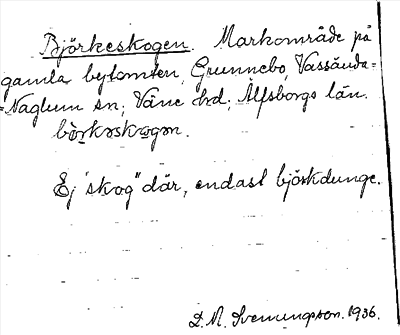 Björkeskogen. Markområde på
gamla bytomten, Grunnebo, Vassända-
-Naglum sn; Väne hd; Älfsborgs län.
bö̀rkəskogən.
Ej "skog" där, endast björkdunge.
D. N. Svenungsson. 1936.